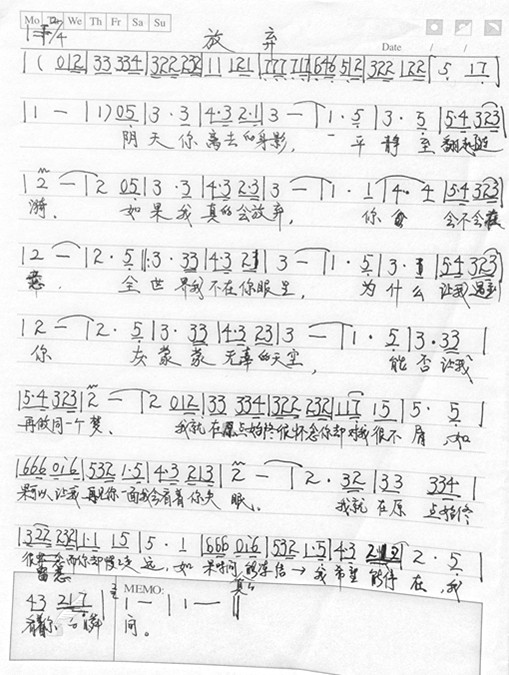 Mo Tu We Th Fr Sa Su
放弃
Date / /
|( 012 | 33 334 | 322 232 | 11 121 | 777 717 | 646 512 | 322 122 | 5 17 |
| 1 - | 1) 05 | 3·3 | 4·3 2·1 | 3 - | 1·5 | 3·5 | 5·4 323 |
阴天你离去的身影, 一平静至翻起涟
| 2 - | 2 05 | 3·3 | 4·3 2·3 | 3 - | 1·1 | 4·4 | 5·4 323 |
漪. 如果我真的会放弃, 你 会不会在
| 2 - | 2·5 |: 3·33 | 4·3 2 | 3 - | 1·5 | 3· | 5·4 323 |
意. 全世界我不在你眼里, 为什么让我遇到
| 2 - | 2·5 | 3·33 | 4·3 23 | 3 - | 1·5 | 3·33 |
你 灰蒙蒙无辜的天空, 能否让我
| 5·4 323 | 2 - | 2 012 | 33 334 | 322 232 | 117 15 | 5·5 |
再做同一个梦. 我就在原点始终很怀念你却对我很不屑, 如
| 666 016 | 532 1·5 | 43 213 | 2 - | 2·32 | 33 334 |
果可以让我再见你一面我会看着你失眠. 我就在原点始终
| 322 232 | 1·1 15 | 5·1 | 666 016 | 532 1·5 | 43 | 2·5 |
你却 远, 如果时间 冻结→我希望能停在, 我
真的
43 217 | 1 - | 1 - ||
MEMO:
看着你的瞬间。